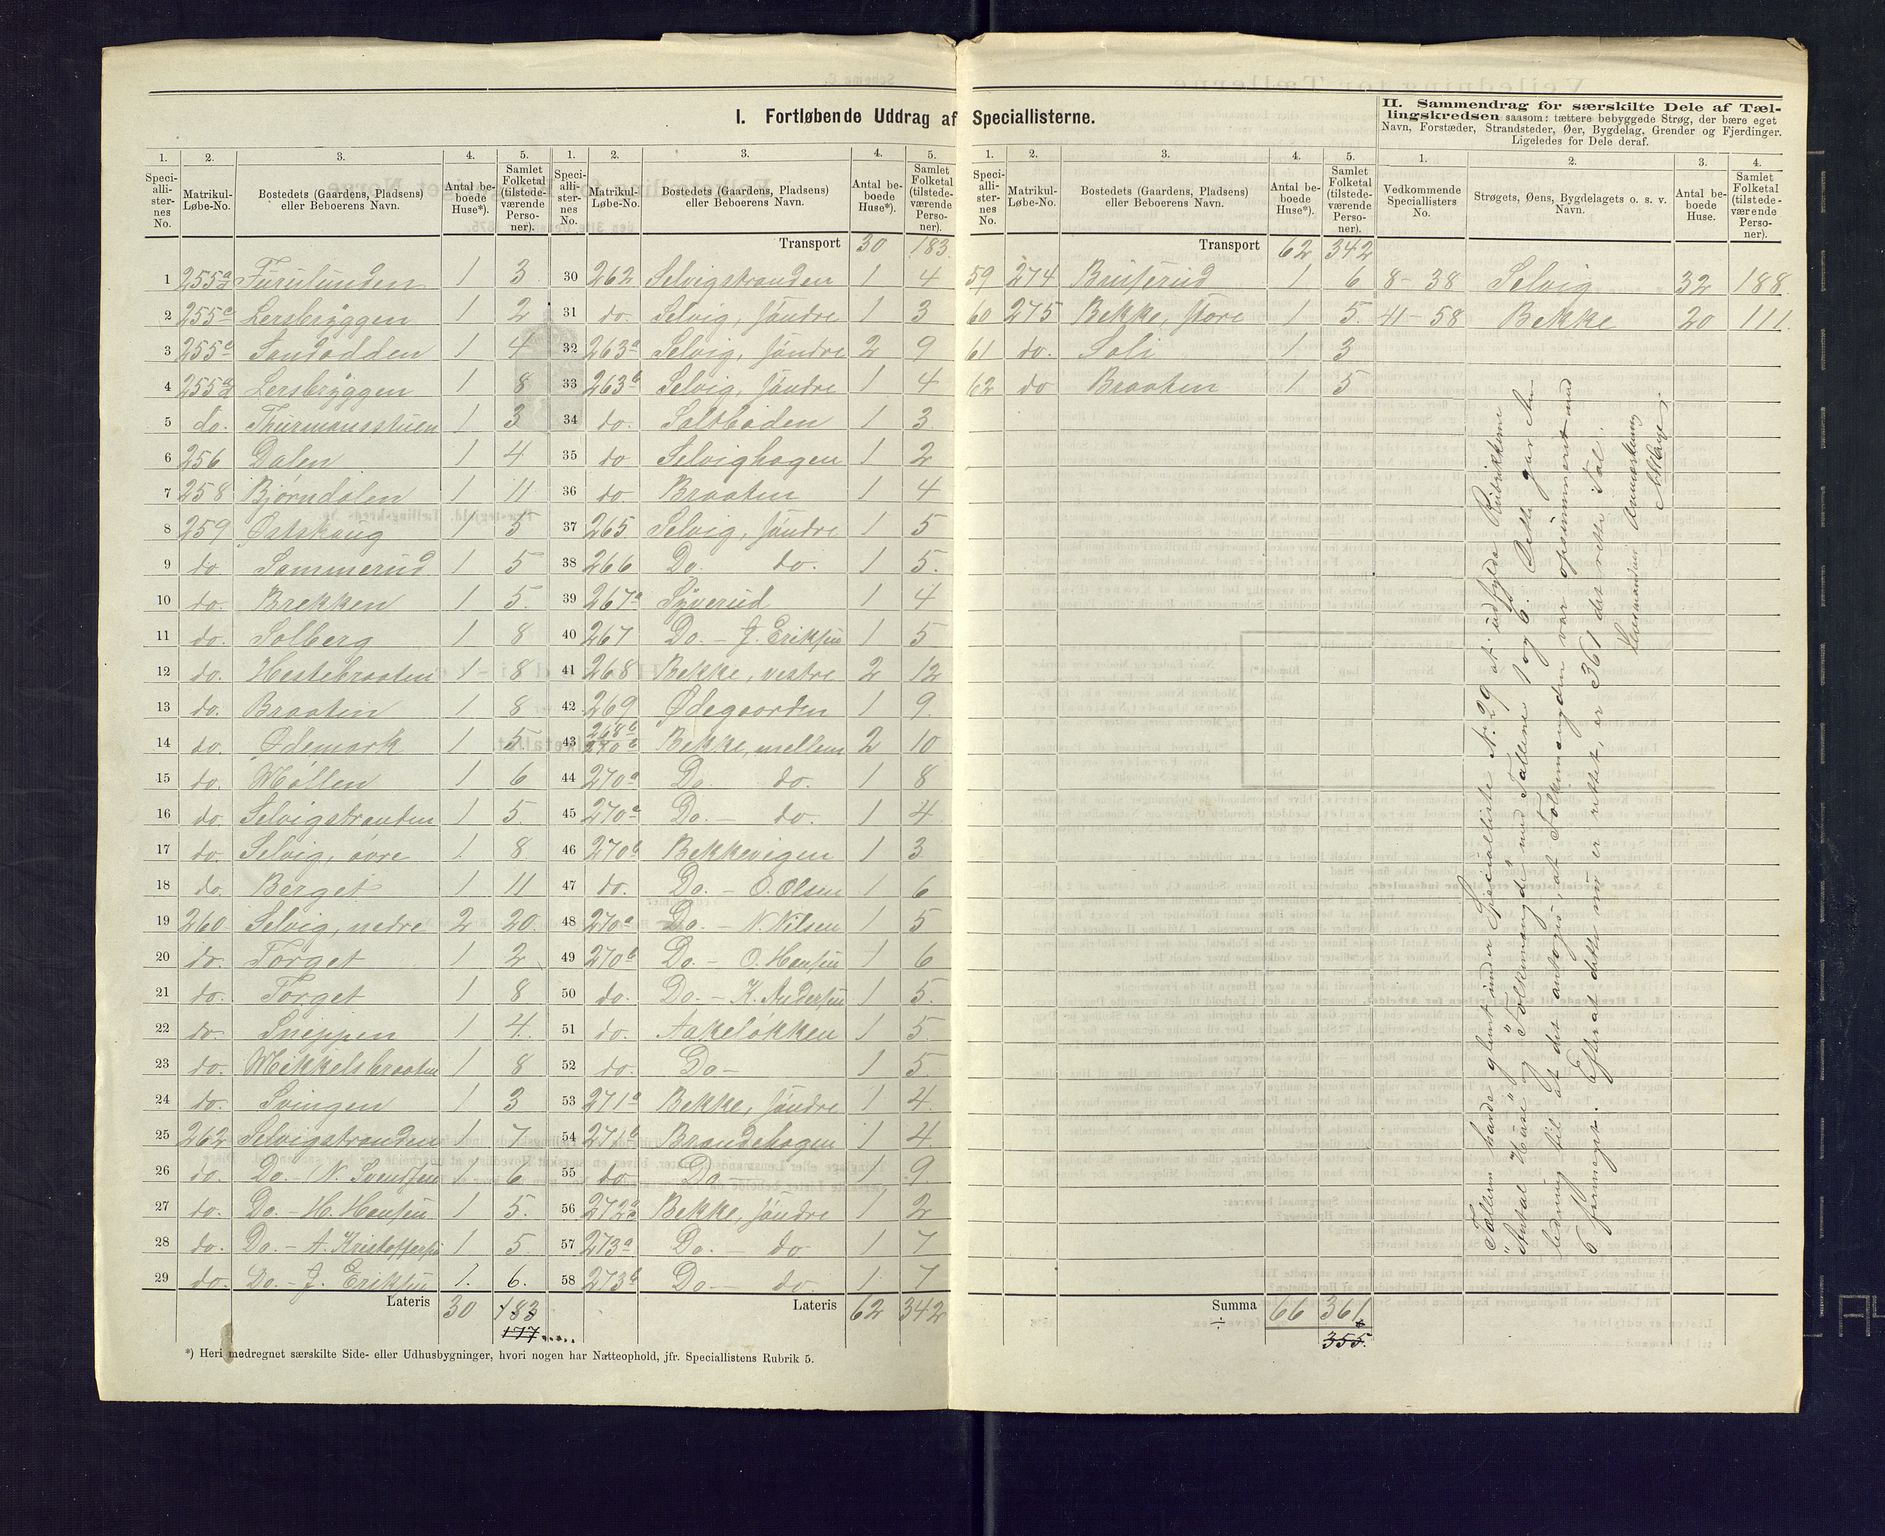 I. Fortløbende Uddrag af Speciallisterne.
II. Sammendrag for særskilte Dele af Tæl-
lingskredsen saasom: tættere bebyggede Strøg, der bære eget
Navn, Forstæder, Strandsteder, Øer, Bygdelag, Grender og Fjerdinger.
Ligeledes for Dele deraf.
1. 2. 3. 4. 5.
Speciallisternes No. Matrikul-Løbe-No. Bostedets (Gaardens, Pladsens) eller Beboerens Navn. Antal beboede Huse*). Samlet Folketal (tilstedeværende Personer).
1 255a Furulunden 1 3
2 255c Lersbryggen 1 2
3 255c Sandodden 1 4
4 255d Lersbryggen 1 8
5 do. Thurmansstuen 1 3
6 256 Dalen 1 4
7 258 Bjørndalen 1 11
8 259 Østskaug 1 5
9 do Sommerud 1 5
10 do. Brekken 1 5.
11 do. Solberg 1 8
12 do. Hestebraaten 1 8
13 do. Braaten 1 8
14 do. Ødemark 1 5
15 do. Møllen 1 6
16 do. Selvigstranden 1 5.
17 do. Selvig, øvre 1. 8
18 do. Berget 1 11
19 260 Selvig, nedre 2 20.
20 do. Torget 1 2
21 do. Torget 1 8
22 do. Sneppen 1 4.
23 do. Mikkelsbraaten 1 8
24 do. Svingen 1 3
25 262 Selvigstranden 1 7
26 do. Do. - N. Svendsen 1. 6
27 do. Do. - H. Hansen 1 5.
28 do. Do. - A. Kristoffersen 1 5.
29 do. Do. - J. Eriksen 1. 6.
Lateris 30 183
177
*) Heri medregnet særskilte Side- eller Udhusbygninger, hvori nogen har Natteophold, jfr. Speciallistens Rubrik 5.
1. 2. 3. 4. 5.
Speciallisternes No. Matrikul-Løbe-No. Bostedets (Gaardens, Pladsens) eller Beboerens Navn. Antal beboede Huse*). Samlet Folketal (tilstedeværende Personer).
Transport 30 183.
30 262 Selvigstranden 1 4
31 do. Selvig, søndre 1 3
32 263a Selvig, søndre 2 9
33 263b Selvig, søndre 1 4
34 do. Saltboden 1 3
35 do Selvighagen 1 2
36 do. Braaten 1 4
37 265 Selvig, søndre 1 5
38 266 Do. do. 1 5.
39 267a Syverud 1 4
40 267 Do. - J. Eriksen 1 5
41 268 Bekke, vestre 2 12
42 269 Ødegaarden 1 9.
43 268b 270b Bekke, mellem 2 10
44 270a Do. do. 1 8
45 270a Do. - do. 1 4.
46 270b Bekkevigen 1 3
47 do. Do. - O. Olsen 1 6
48 270a Do. - N. Nilsen 1 5
49 270b Do. - O. Hansen 1 6
50 do. Do. - K. Andersen 1 5.
51 do. Aakeløkken 1 5.
52 do. Do - 1 5.
53 271a Bekke, søndre 1 4.
54 271b Brandehagen 1 4.
55 do Do 1 9.
56 272a Bekke, søndre 1 2
57 273a Do. - do 1 7
58 273b Do. - do. 1 7
Lateris 62 342
1. 2. 3. 4. 5.
Speciallisternes No. Matrikul-Løbe-No. Bostedets (Gaardens, Pladsens) eller Beboerens Navn. Antal beboede Huse*). Samlet Folketal (tilstedeværende Personer).
Transport 62 342
59 274 Bruserud 1 6
60 275 Bekke, store 1 5.
61 do. Soli 1 3
62 do Braaten 1 5
Summa 66 361
÷ 355.
1. 2. 3. 4.
Vedkommende Speciallisters No. Strøgets, Øens, Bygdelagets o. s. v. Navn. Antal beboede Huse. Samlet Folketal (tilstedeværende Personer).
8 - 38 Selvig 32 188
41 - 58 Bekke 20 111.
Tælleren havde glemt under Specialliste Nr. 29 at udfylde Rubrikkerne
"Antal Huse" og "Folkemængde" med Tallene 1 og 6. Dette gav An-
ledning til at det antoges, at Folkemængden var opsummeret med
6 formeget. Efterat dette nu er rettet, er 361 det rette Tal.
Lensmandens Anmerkning